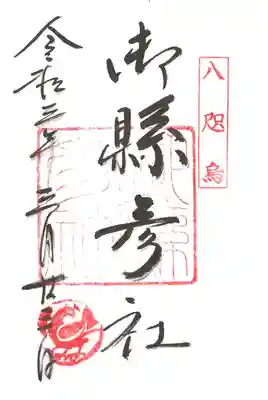 八咫烏
御縣彦社
令和三年三月廿三日